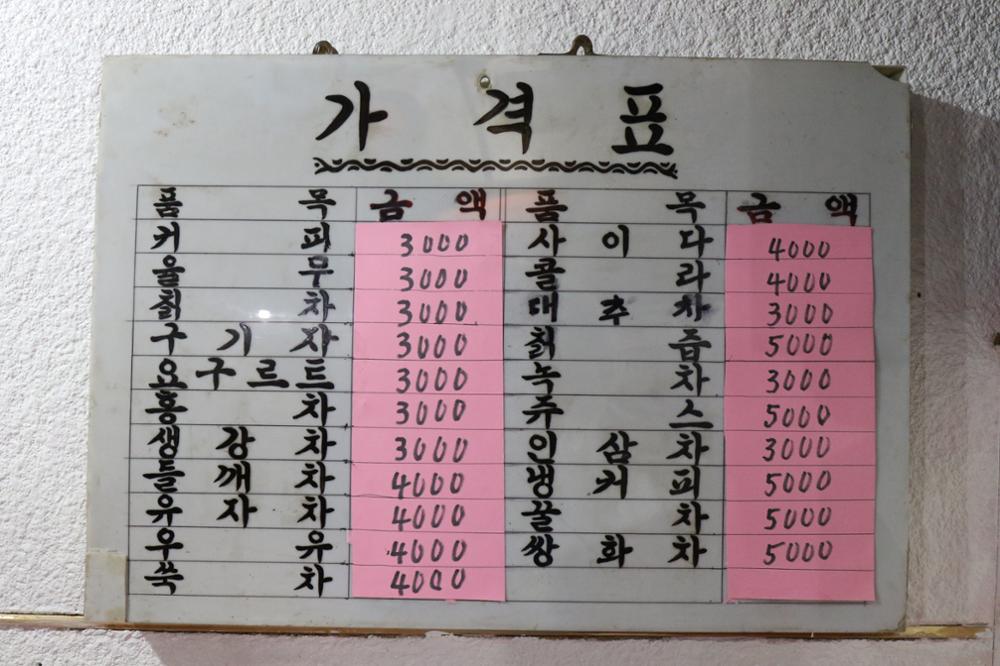 가 격 표
품 목 금 액 품 목 금 액
커 피 3000 사 이 다 4000
율 무 3000 콜 라 4000
칡 차 3000 대 추 차 3000
구 기 자 3000 칡 즙 5000
요 구 르 트 3000 녹 차 3000
홍 차 3000 쥬 스 5000
생 강 차 3000 인 삼 차 3000
들 깨 차 4000 냉 커 피 5000
유 자 차 4000 꿀 차 5000
우 유 4000 쌍 화 차 5000
쑥 차 4000